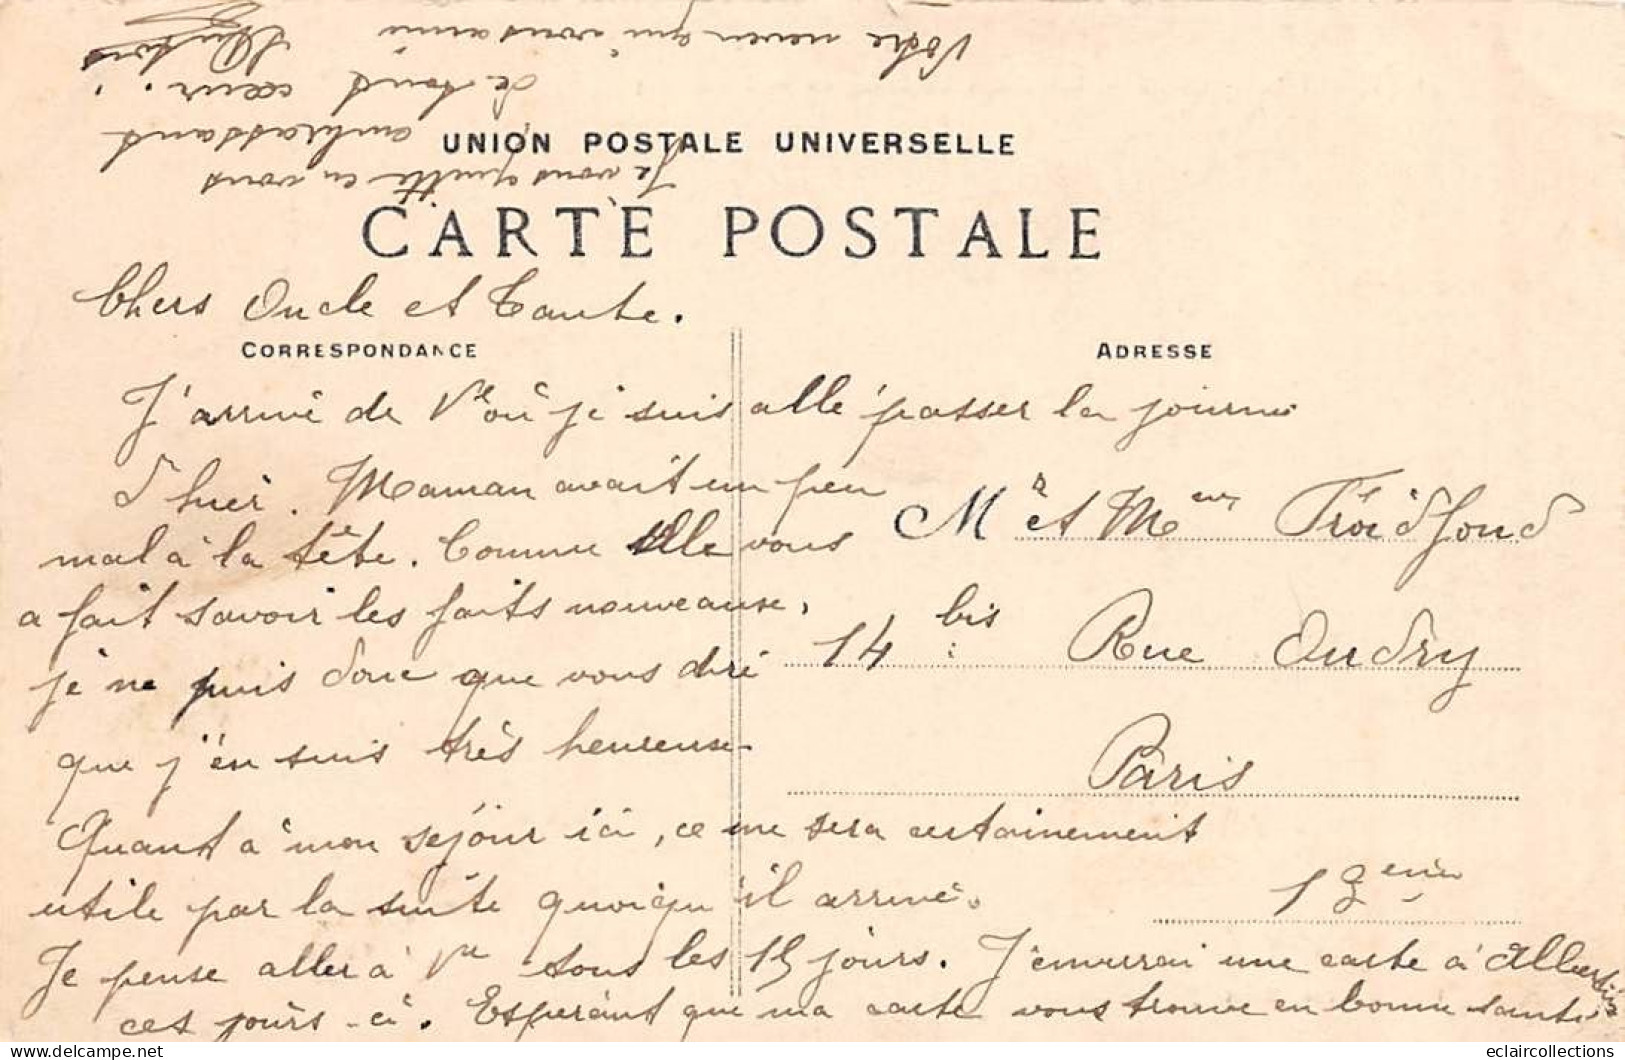 UNION POSTALE UNIVERSELLE
CARTE POSTALE
Chers Oncle et Tante.
CORRESPONDANCE
ADRESSE
J'arrive de Vle où je suis allé passer la journée
d'hier. Maman avait un peu
mal à la tête. Comme Elle vous
a fait savoir les faits nouveaux,
je ne puis donc que vous dire
que j'en suis très heureuse.
Quant à mon séjour ici, ce me sera certainement
utile par la suite quoiqu'il arrive.
Je pense aller à Vlle tous les 15 jours. J'enverrai une carte à
ces jours-ci. Espérant que ma carte vous trouve en bonne santé
Je vous quitte en vous
embrassant
de tout cœur.
Votre neveu qui vous aime
Mr et Mme Froidfond
14 bis Rue Oudry
Paris
13ème
eclaircollections